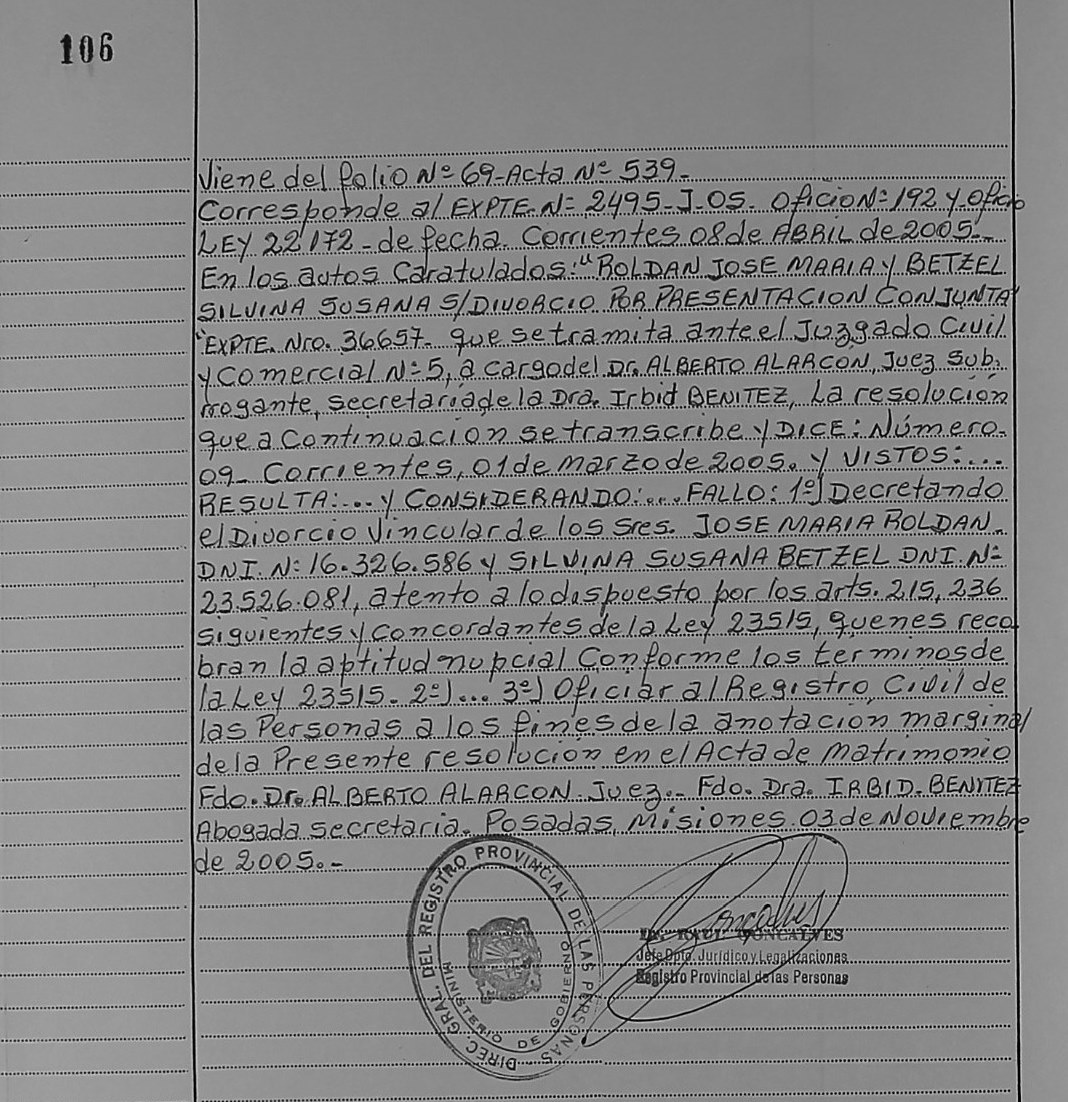 106
Viene del folio Nº 69-Acta Nº 539.-
Corresponde al EXPTE. Nº 2495-J-05. Oficio Nº 192 y Oficio
LEY 22172 - de fecha. Corrientes 08 de ABRIL de 2005.-
En los autos Caratulados: "ROLDAN JOSE MARIA Y BETZEL
SILVINA SUSANA S/DIVORCIO POR PRESENTACION CONJUNTA"
"EXPTE. Nro. 36657- que se tramita ante el Juzgado Civil
y Comercial Nº 5, a cargo del Dr. ALBERTO ALARCON, Juez Sub.
rrogante, secretaria de la Dra. Irbid BENITEZ, La resolución
que a continuación se transcribe y DICE: Número.
09- Corrientes, 01 de marzo de 2005. y VISTOS:...
RESULTA:... y CONSIDERANDO:... FALLO: 1º) Decretando
el Divorcio Vincular de los Sres. JOSE MARIA ROLDAN.
DNI. Nº 16.326.586 y SILVINA SUSANA BETZEL DNI. Nº
23.526.081, atento a lo dispuesto por los arts. 215, 236
siguientes y concordantes de la Ley 23515, quenes reco
bran la aptitud nupcial Conforme los terminos de
la Ley 23515- 2º)... 3º) Oficiar al Registro Civil de
las Personas a los fines de la anotación marginal
de la Presente resolución en el Acta de matrimonio
Fdo. Dr. ALBERTO ALARCON. Juez.- Fdo. Dra. IRBID. BENITEZ
Abogada secretaria. Posadas, Misiones 03 de Noviembre
de 2005.-
DIREC. GRAL. DEL REGISTRO PROVINCIAL DE LAS PERSONAS
MINISTERIO DE GOBIERNO
Dr. RAUL GONCALVES
Jefe Dpto. Jurídico y Legalizaciones
Registro Provincial de las Personas